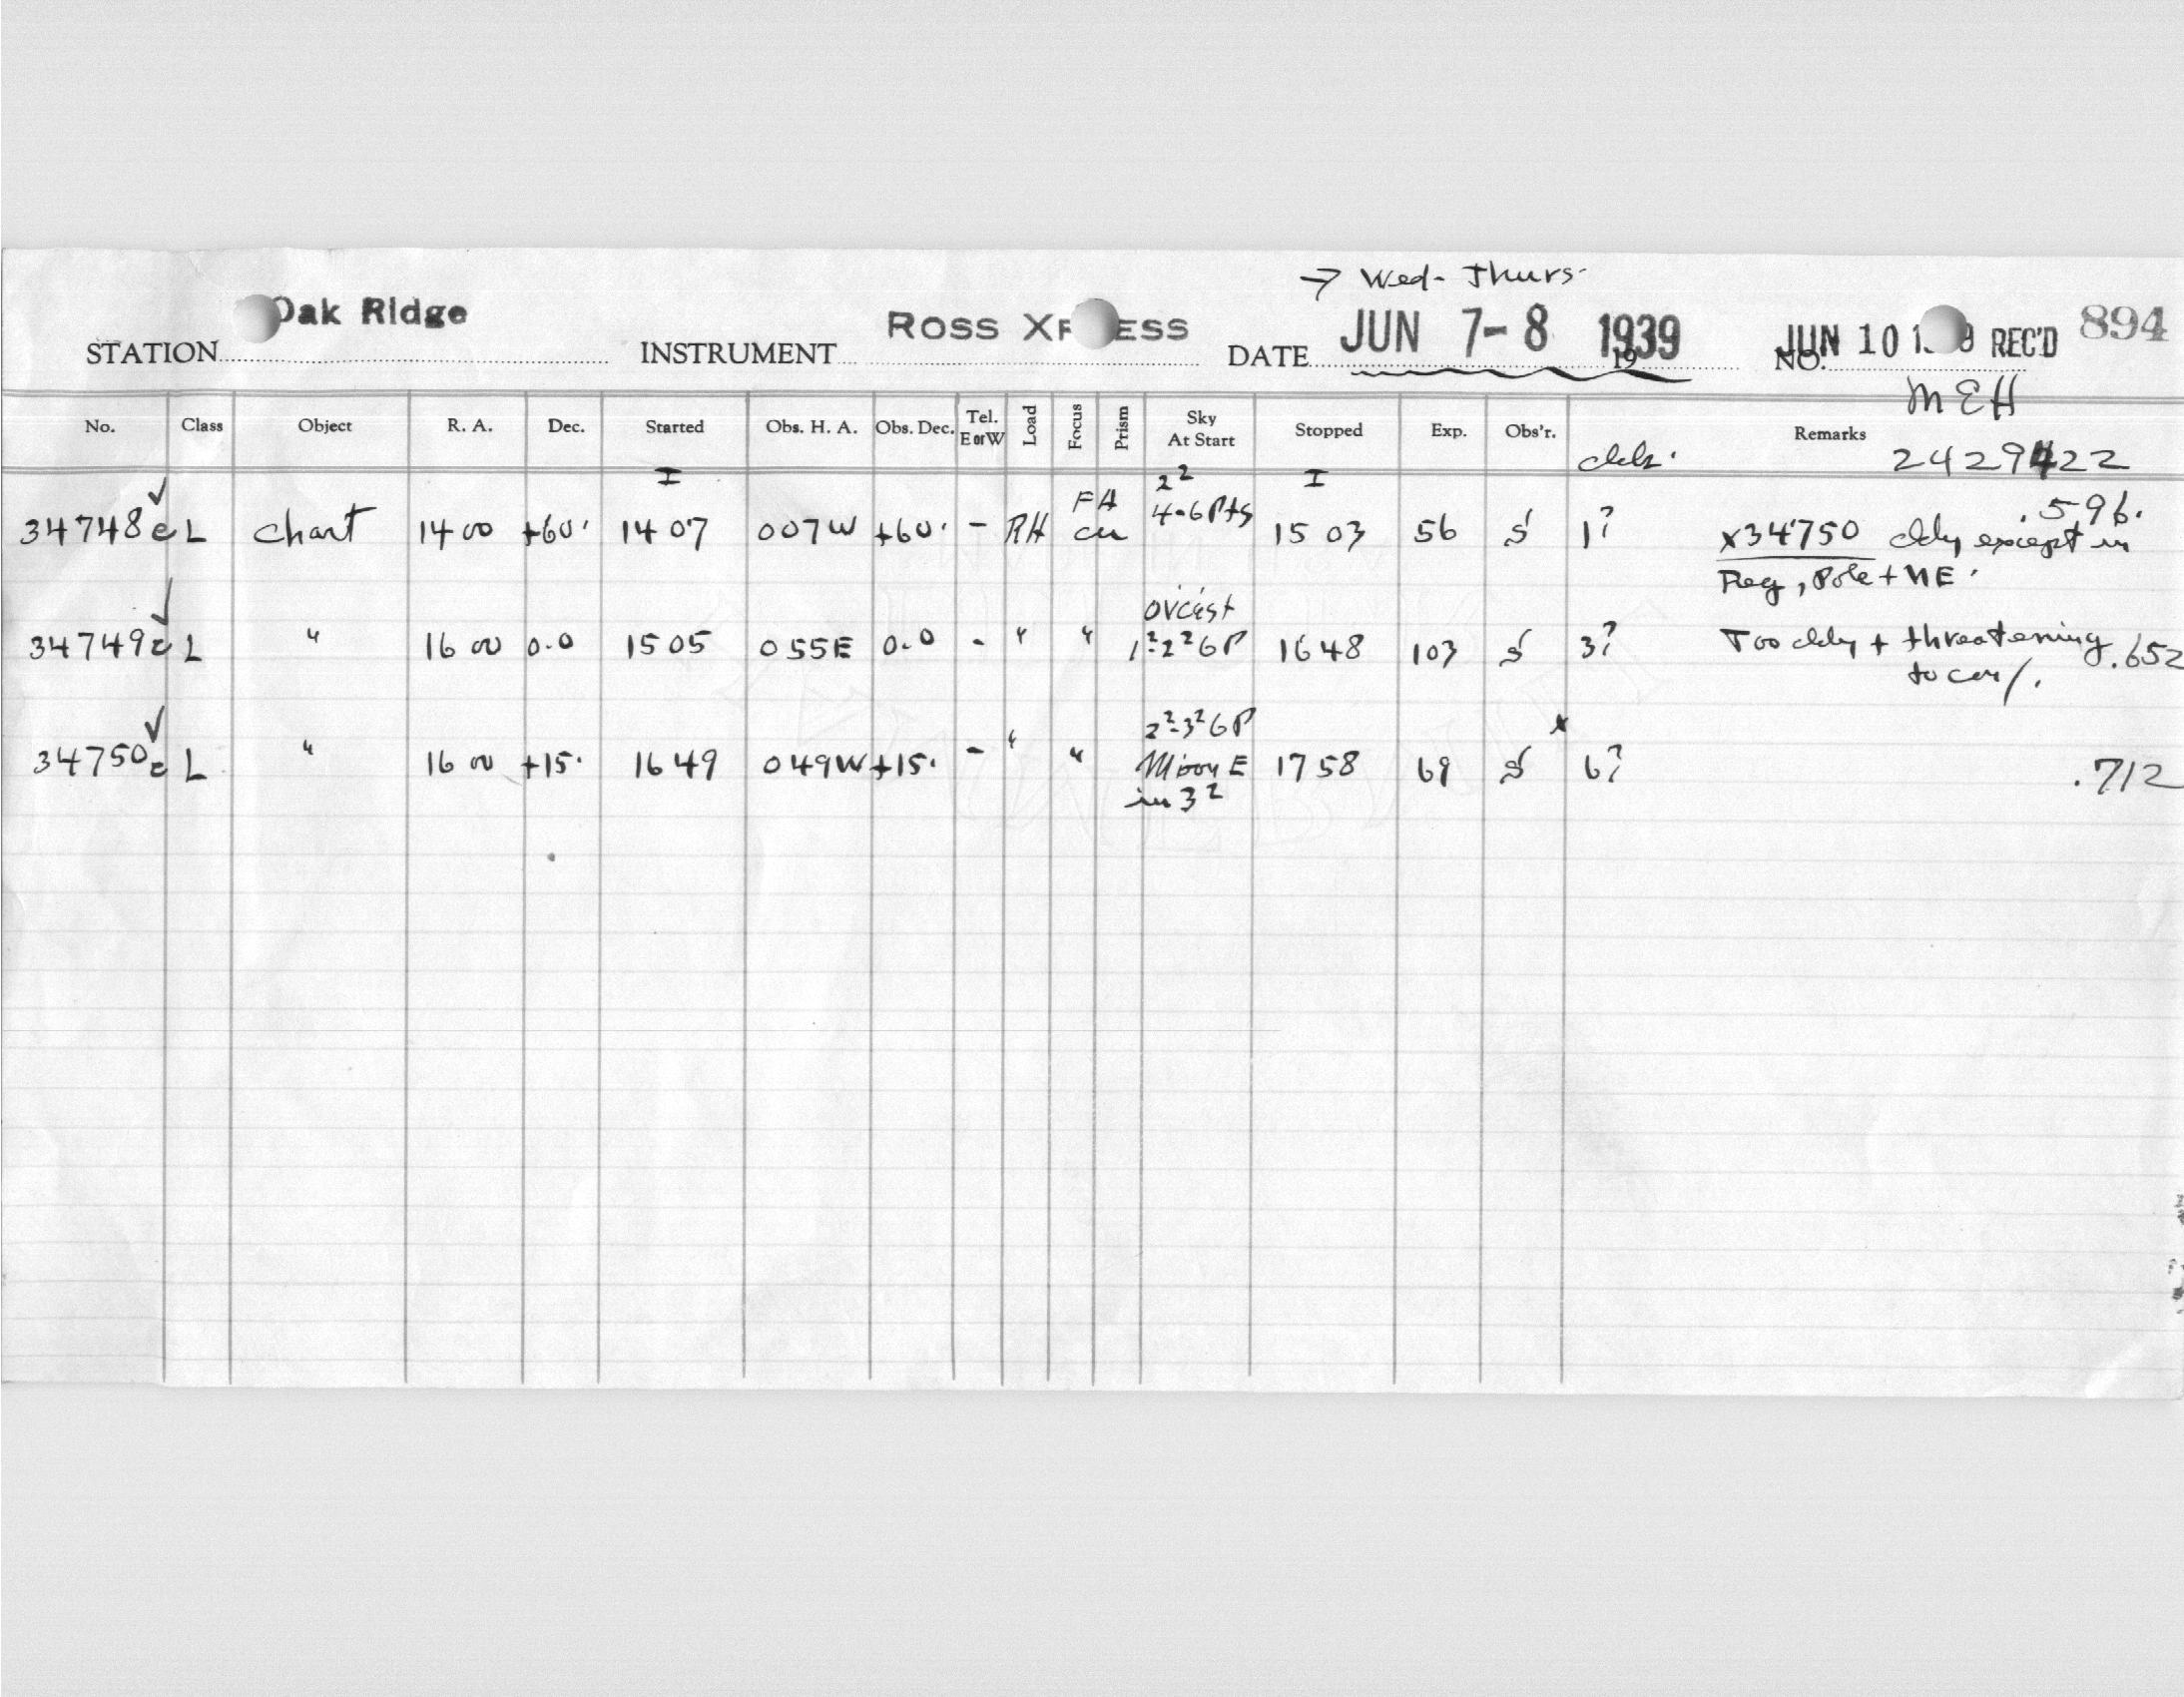 → Wed- Thurs-
STATION Oak Ridge INSTRUMENT ROSS XP ESS DATE JUN 7-8 1939 19 NO. JUN 10 1 9 REC'D 894
MEH
No. Class Object R. A. Dec. Started Obs. H. A. Obs. Dec. Tel. E or W Load Focus Prism Sky At Start Stopped Exp. Obs'r. clds. Remarks 2429422
I I
34748c ✓ L chart 14 00 +60· 14 07 007W +60· - RH FA cu 2² 4-6 Pts 15 03 56 S 1? x34750 cldy except in .596.
Reg, Pole + NE.
34749c ✓ L " 16 00 0.0 15 05 055E 0.0 - " " ovcast 1²-2² 6P 1648 103 S 3? Too cldy + threatening .652
to con/.
34750c ✓ L " 16 00 +15· 1649 049W +15· - " " 2²-3² 6P Moon E in 3² 1758 69 S x 6? .712